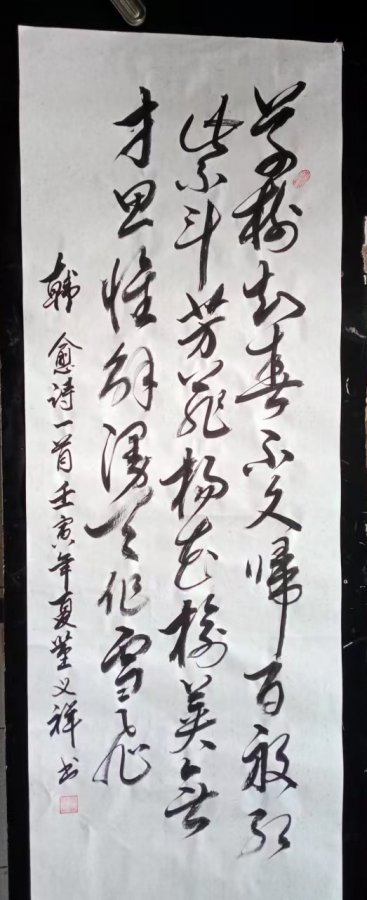 草树知春不久归百般红
紫斗芳菲杨花榆荚无
才思惟解漫天作雪飞
韩愈诗一首壬寅年夏董义祥书